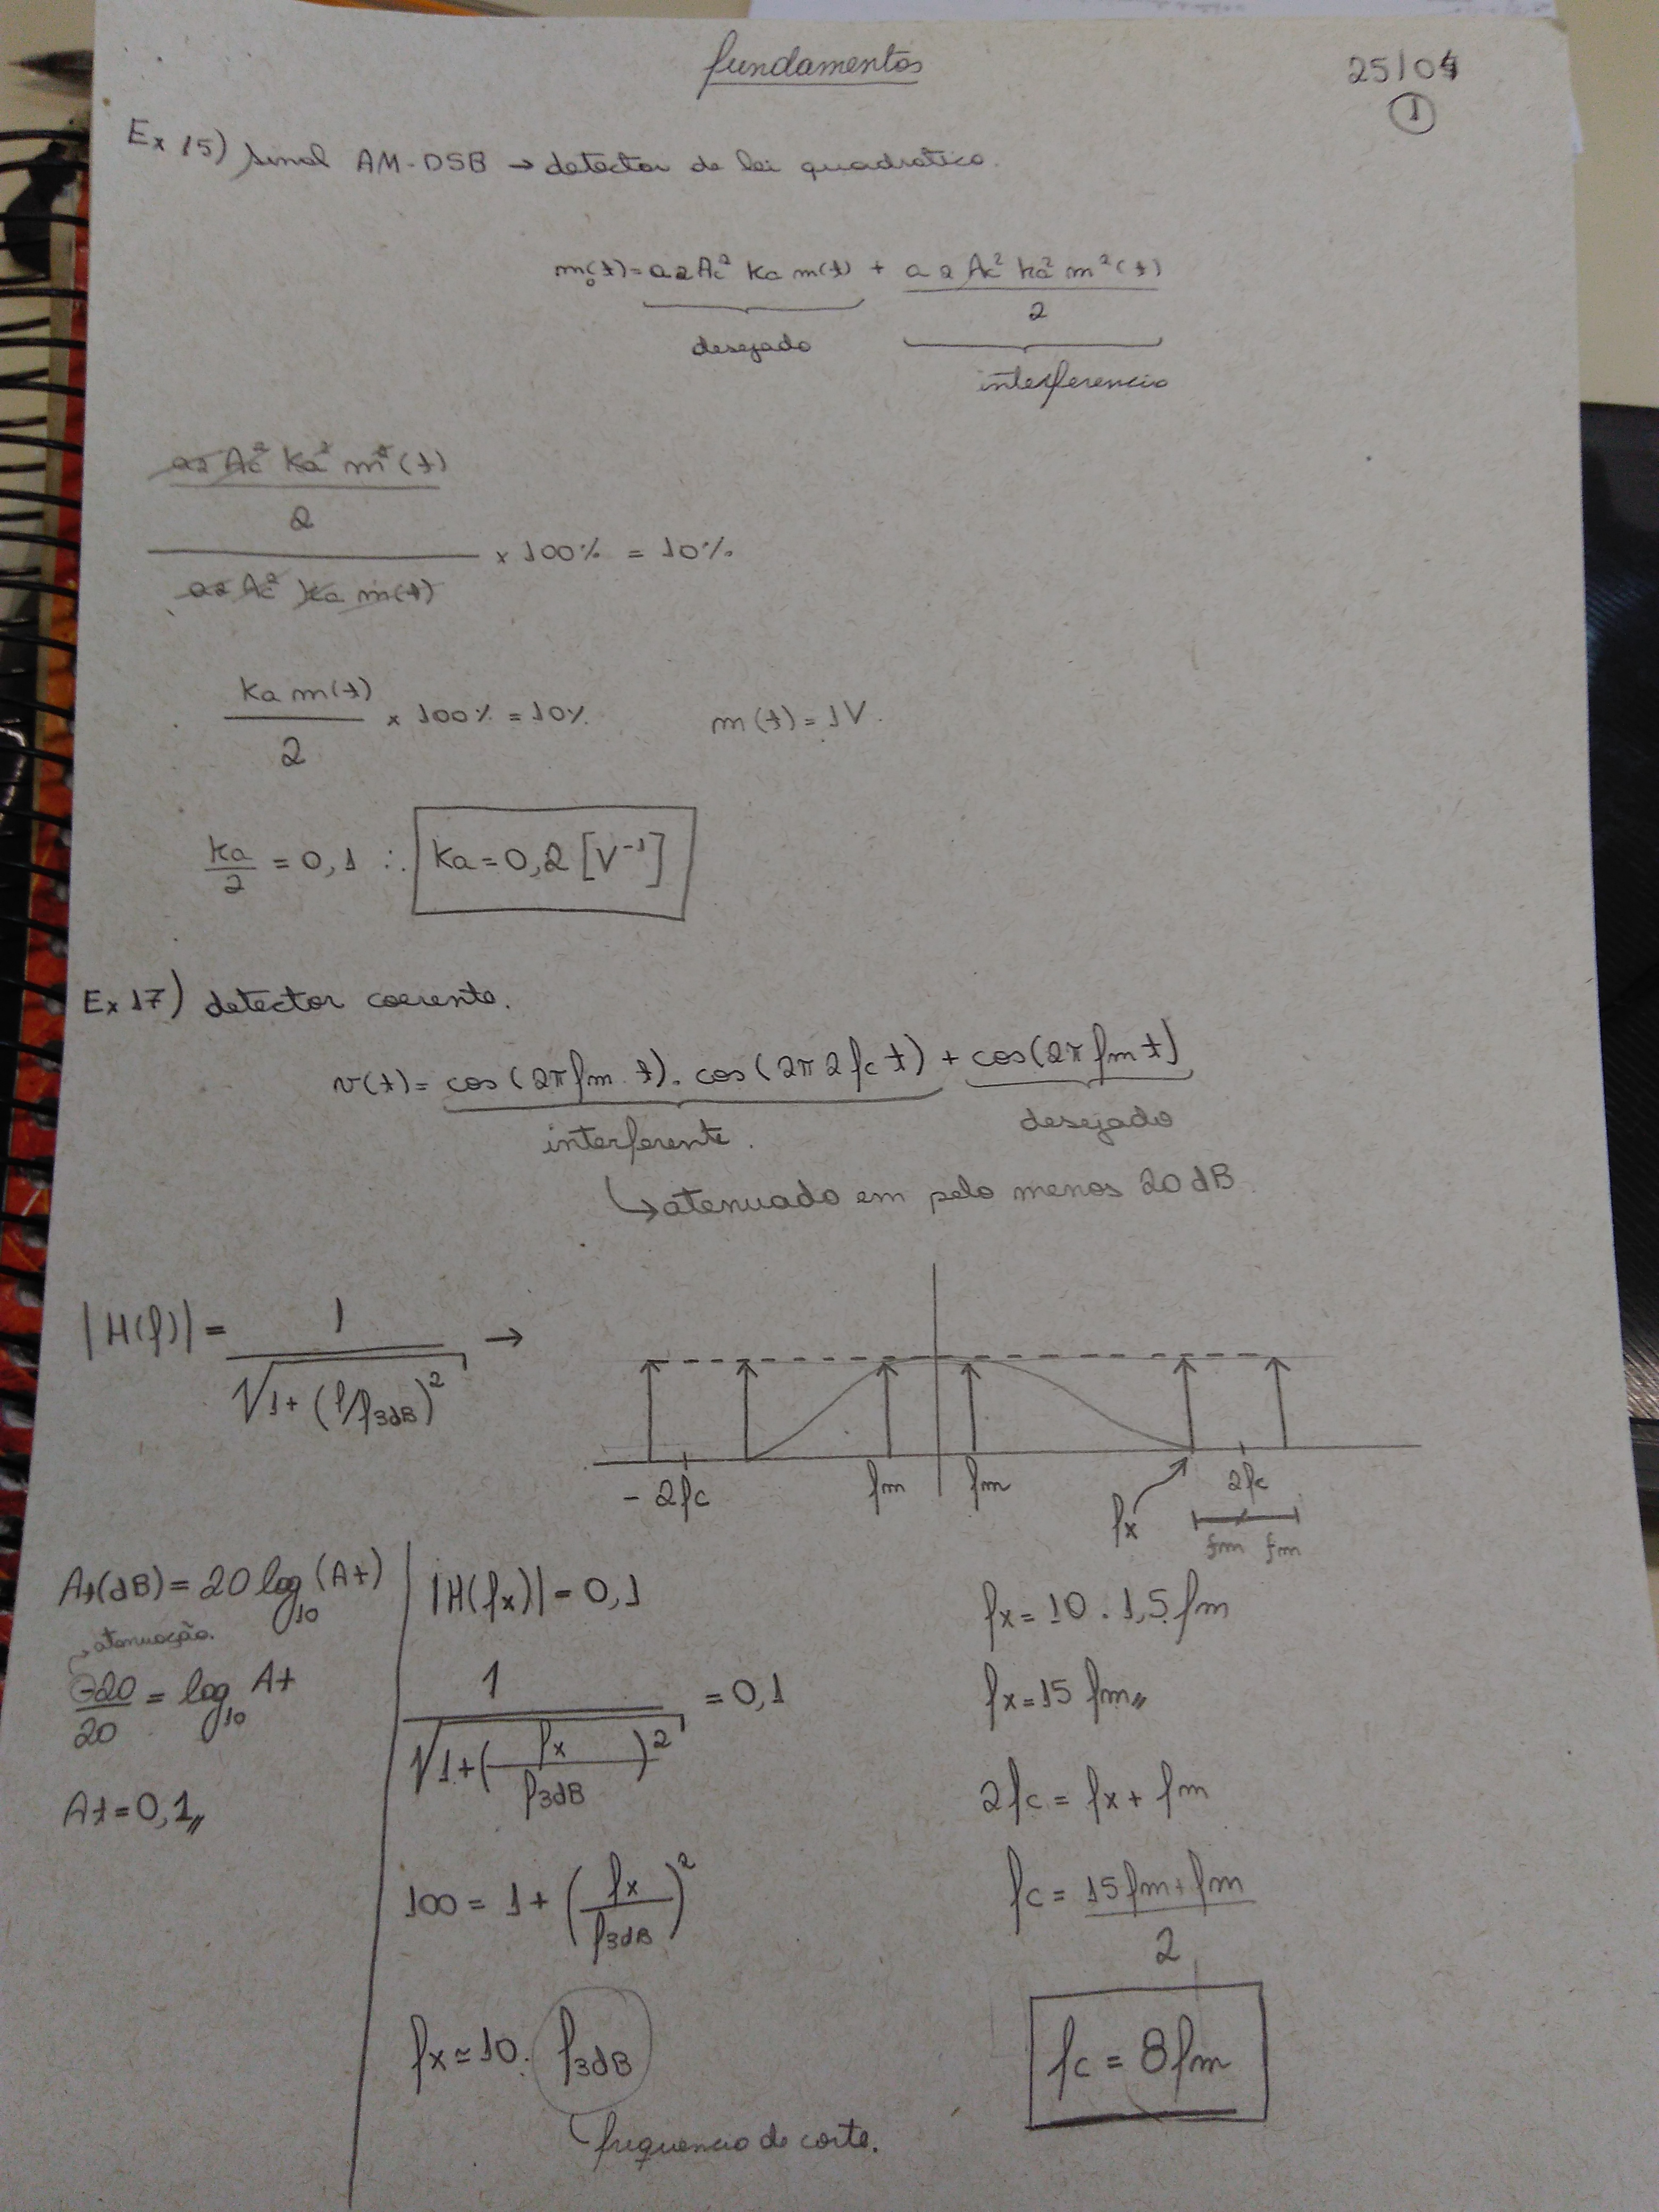 fundamentos
25/04
1
Ex 15) sinal AM-DSB → detector de lei quadratica.
mo(t) = a2Ac² ka m(t) + a2Ac² ka² m²(t) / 2
desejado
interferencia
a2Ac² ka² m²(t) / 2
/ a2Ac² ka m(t) × 100% = 10%
ka m(t) / 2 × 100% = 10% m(t) = 1V.
ka/2 = 0,1 ∴ ka = 0,2 [V⁻¹]
Ex 17) detector coerente.
v(t) = cos(2πfm t). cos(2π2fc t) + cos(2πfm t)
interferente. desejado
↳ atenuado em pelo menos 20dB
|H(f)| = 1 / √1+(f/f3dB)² →
-2fc fm fm fx 2fc
fm fm
At(dB) = 20 log10 (At)
atenuação.
-20/20 = log10 At
At = 0,1"
|H(fx)| = 0,1
1 / √1+(fx/f3dB)² = 0,1
100 = 1 + (fx/f3dB)²
fx ≃ 10. f3dB
frequencia de corte.
fx = 10 . 1,5.fm
fx = 15 fm"
2fc = fx + fm
fc = 15fm + fm / 2
fc = 8fm